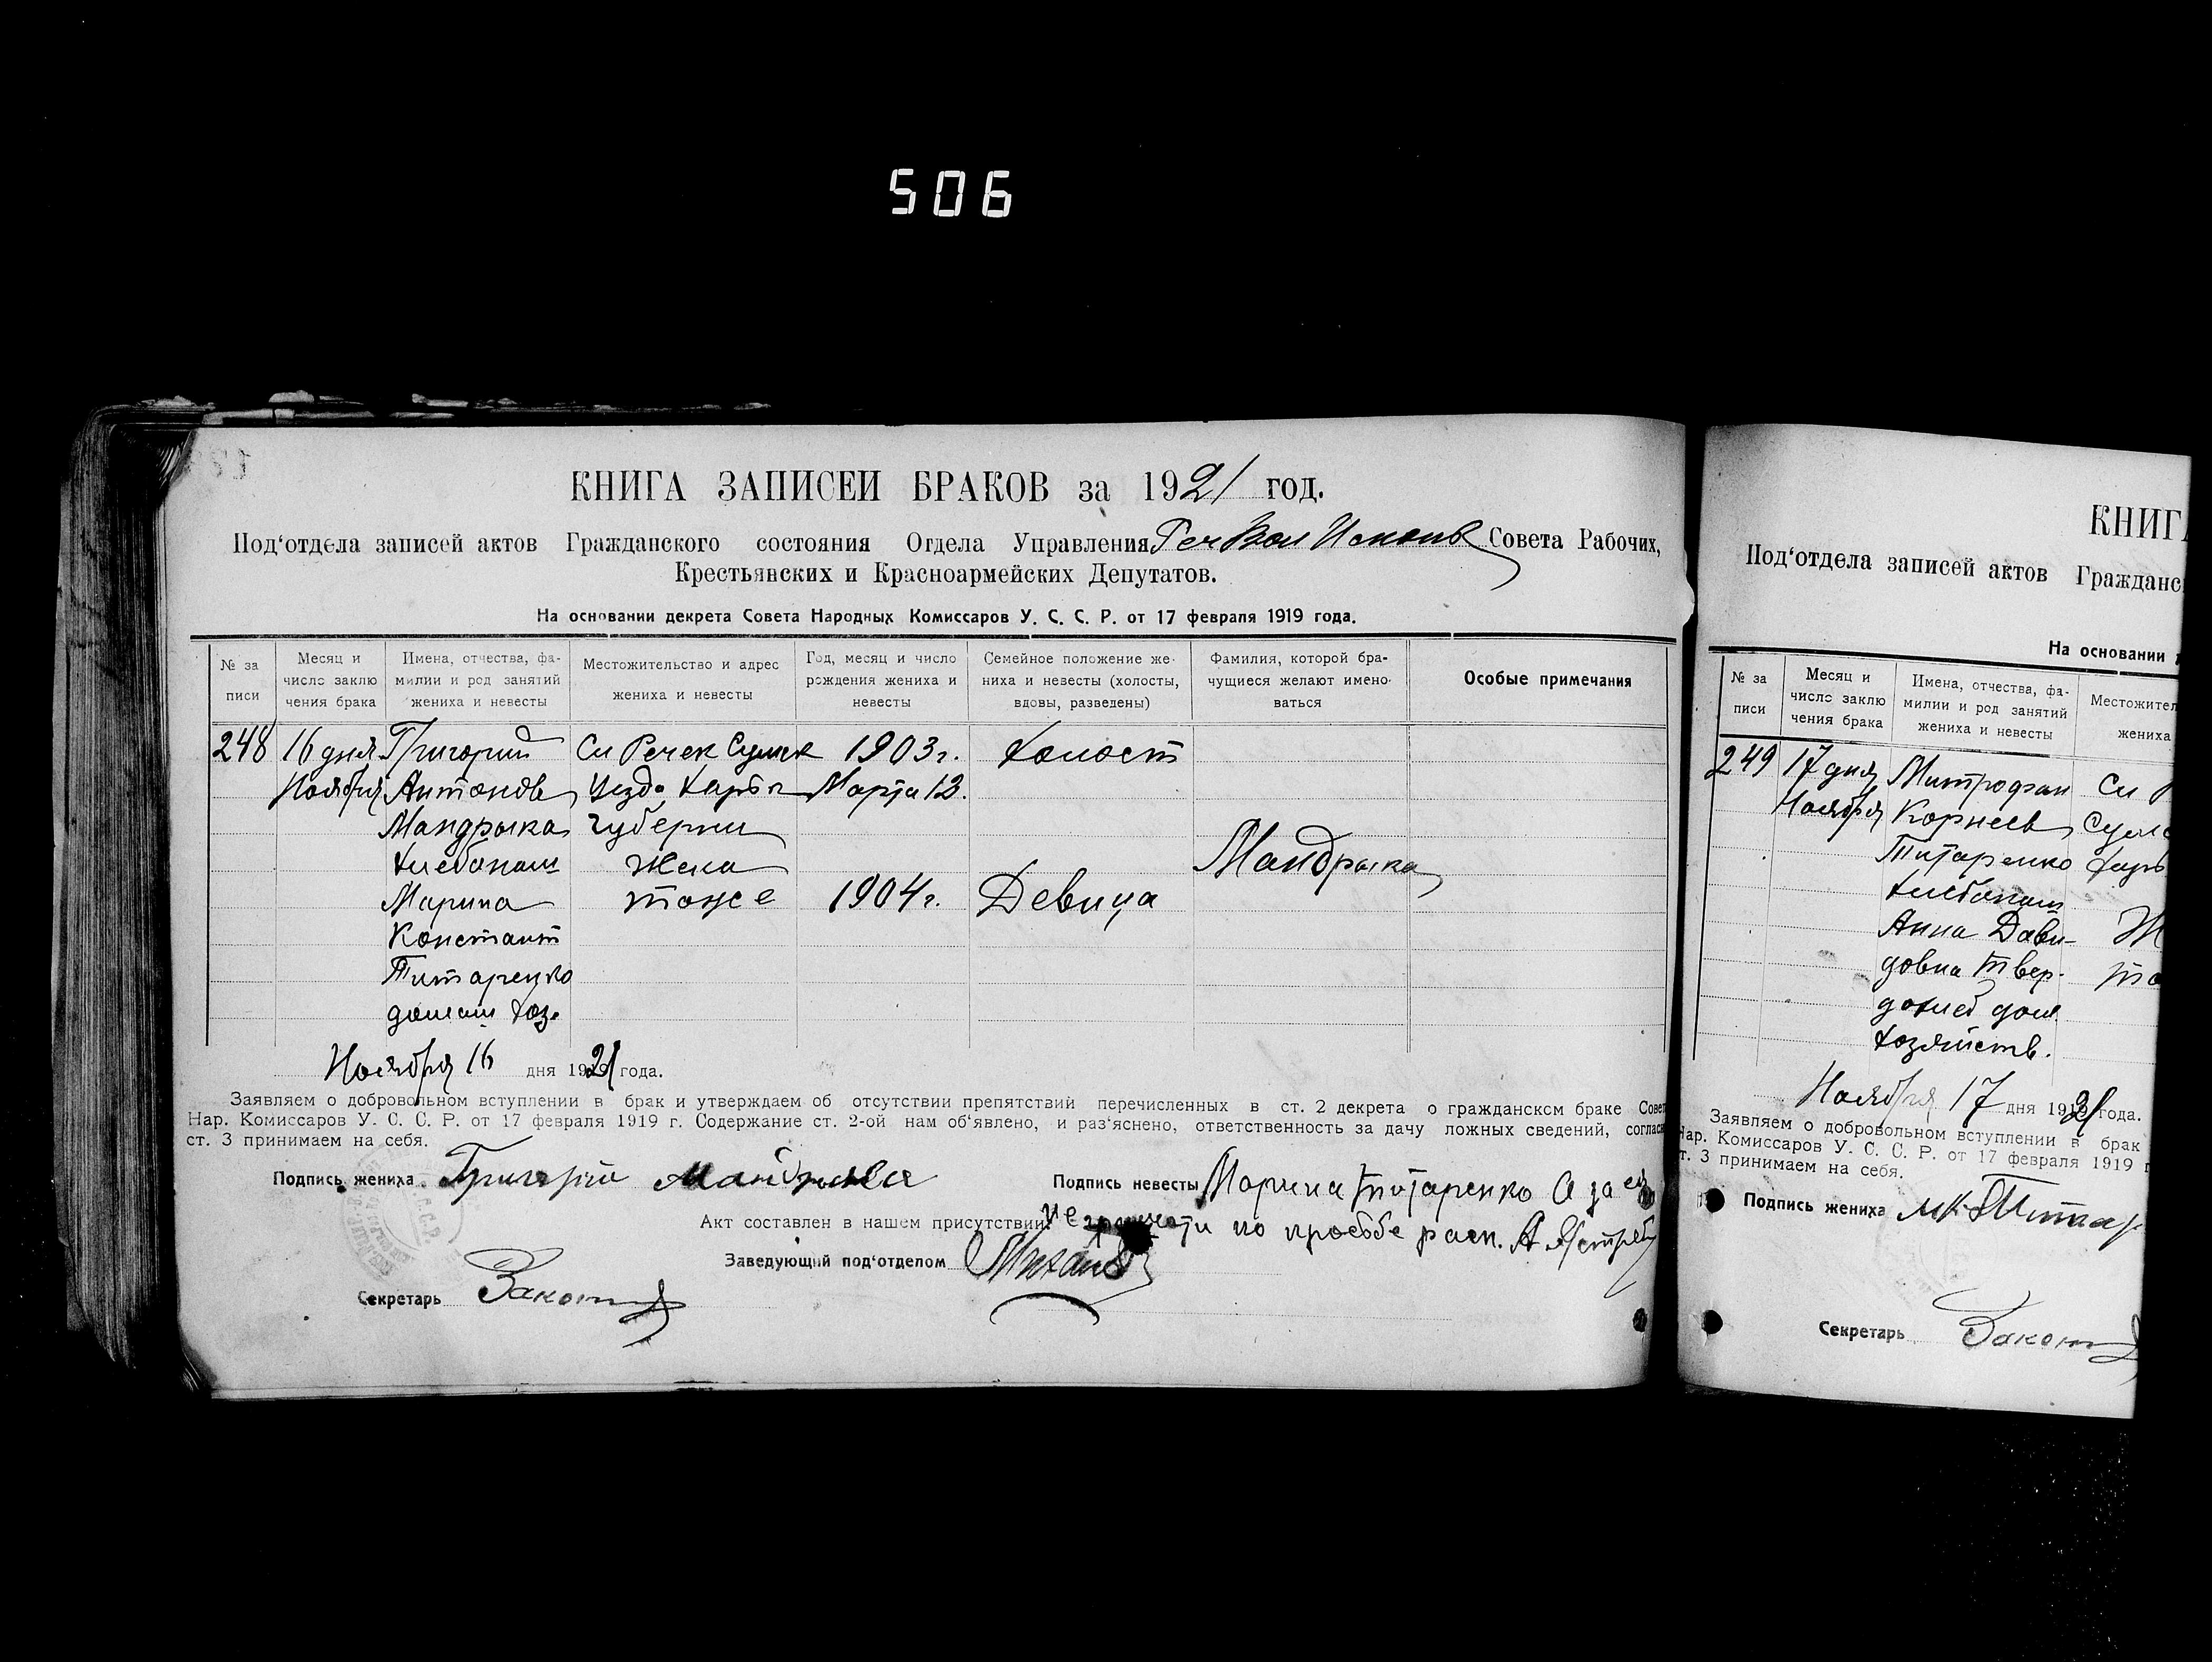 506
КНИГА ЗАПИСЕЙ БРАКОВ за 1921 год.
Под'отдела записей актов Гражданского состояния Отдела Управления Реч Вол Исполк Совета Рабочих,
Крестьянских и Красноармейских Депутатов.
На основании декрета Совета Народных Комиссаров У. С. С. Р. от 17 февраля 1919 года.
№ записи
Месяц и число заключения брака
Имена, отчества, фамилии и род занятий жениха и невесты
Местожительство и адрес жениха и невесты
Год, месяц и число рождения жениха и невесты
Семейное положение жениха и невесты (холосты, вдовы, разведены)
Фамилия, которой брачущиеся желают именоваться
Особые примечания
248 16 дня Григорий Сл Речек Сумск 1903 г. Холост
Ноября Антонов Уезда Харьк Марта 12.
Мандрыка губернии
хлебопаш жена Мандрыка
Марина тоже 1904 г. Девица
Констант
Титаренко
домаш хоз.
Ноября 16 дня 1921 года.
Заявляем о добровольном вступлении в брак и утверждаем об отсутствии препятствий перечисленных в ст. 2 декрета о гражданском браке Совет
Нар. Комиссаров У. С. С. Р. от 17 февраля 1919 г. Содержание ст. 2-ой нам об'явлено, и раз'яснено, ответственность за дачу ложных сведений, соглас
ст. 3 принимаем на себя.
Подпись жениха Григорій Мандрыка
Подпись невесты Марина Титаренко А за ея
Акт составлен в нашем присутствии:
не по просьбе расп. А Ястреб
Заведующий под'отделом
Секретарь
КНИГ
Под'отдела записей актов Гражданс
На основании
№ записи
Месяц и число заключения брака
Имена, отчества, фамилии и род занятий жениха и невесты
Местожител
жениха
249 17 дня Митрофан Сл Р
Ноября Корнеев Сумс
Титаренко Харь
хлебопаш
Анна Дави- Ж
довна Твер- то
дохлеб дом.
хозяйств.
Ноября 17 дня 1921 года.
Заявляем о добровольном вступлении в брак
Нар. Комиссаров У. С. С. Р. от 17 февраля 1919 г
ст. 3 принимаем на себя.
Подпись жениха МК Титар
Секретарь